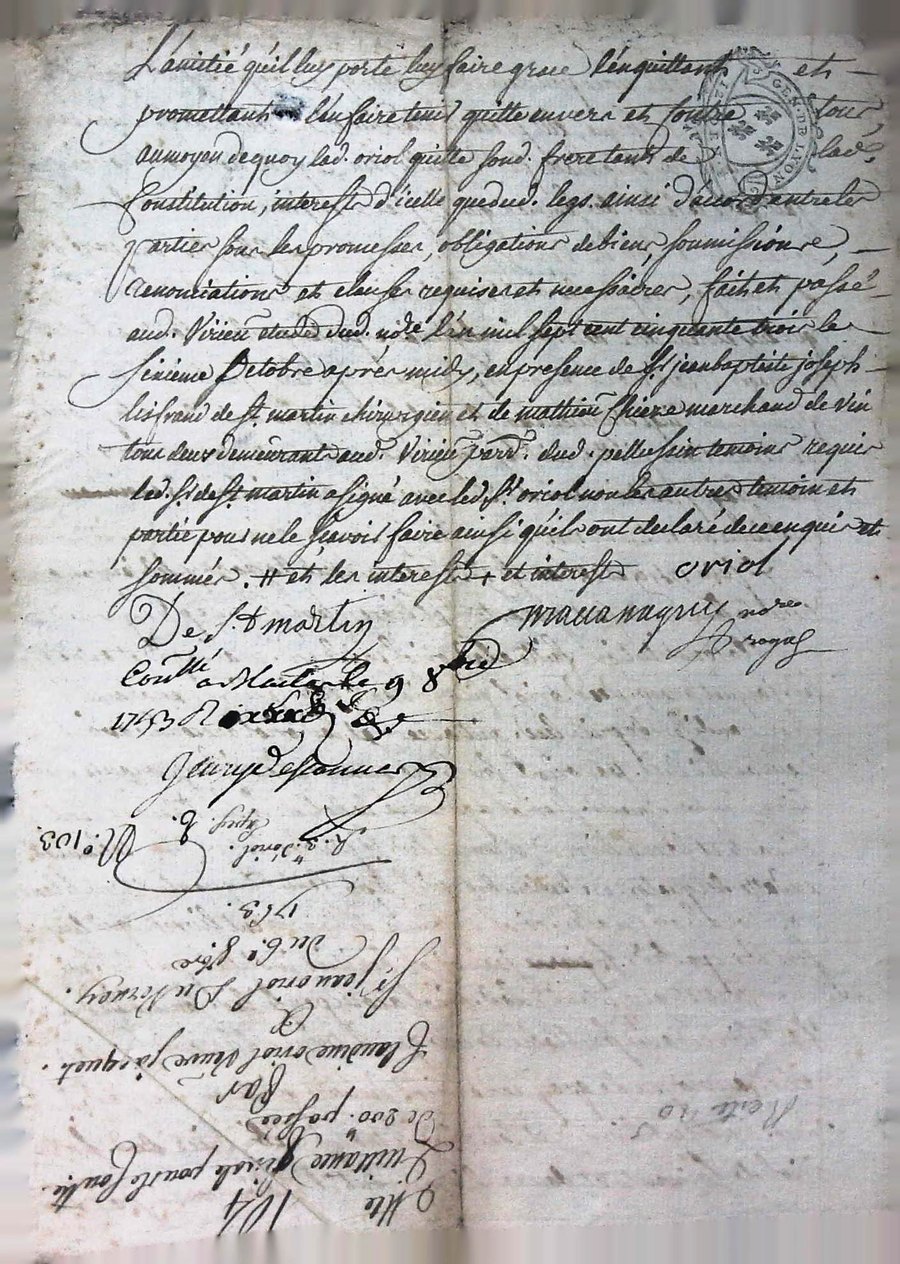 L'amitié qu'il luy porte luy faire grace l'en quittant et
promettant l'en faire tenir quitte envers et contre tous
au moyen de quoy led. oriol quitte sond. frere tant de lad.
Constitution, interests d'icelle que dud. legs. ainsi d'accord entre les
parties sous les promesses, obligations de biens, soumissions,
renonciations et clauses requises et necessaires, fait et passé
aud. Virieu etude dud. nore. l'an mil sept cent cinquante trois le
sixieme Octobre après midy, en presence de Sr. jean baptiste joseph
lisfranc de st. martin chirurgien et de mathieu marchand de vin
tous deux demeurant aud. Virieu parr. dud. pellussin temoins requis
led. Sr. de st. martin a signé avec led. Sr. oriol non les autres temoin et
partie pour ne le sçavoir faire ainsi qu'ils ont declaré de ce enquis et
sommés. # et les interests + et interests oriol
De St martin
nore
royal
Conllé a le 9 8bre
1753 R
No. 103.
1753.
du 6e 8bre
Sr. jean oriol Du Verney.
A
Claudine oriol Veuve jacquet.
Par
De 200. passée
Quittance finale pour la somme
Cotte 104
GEN DE LYON